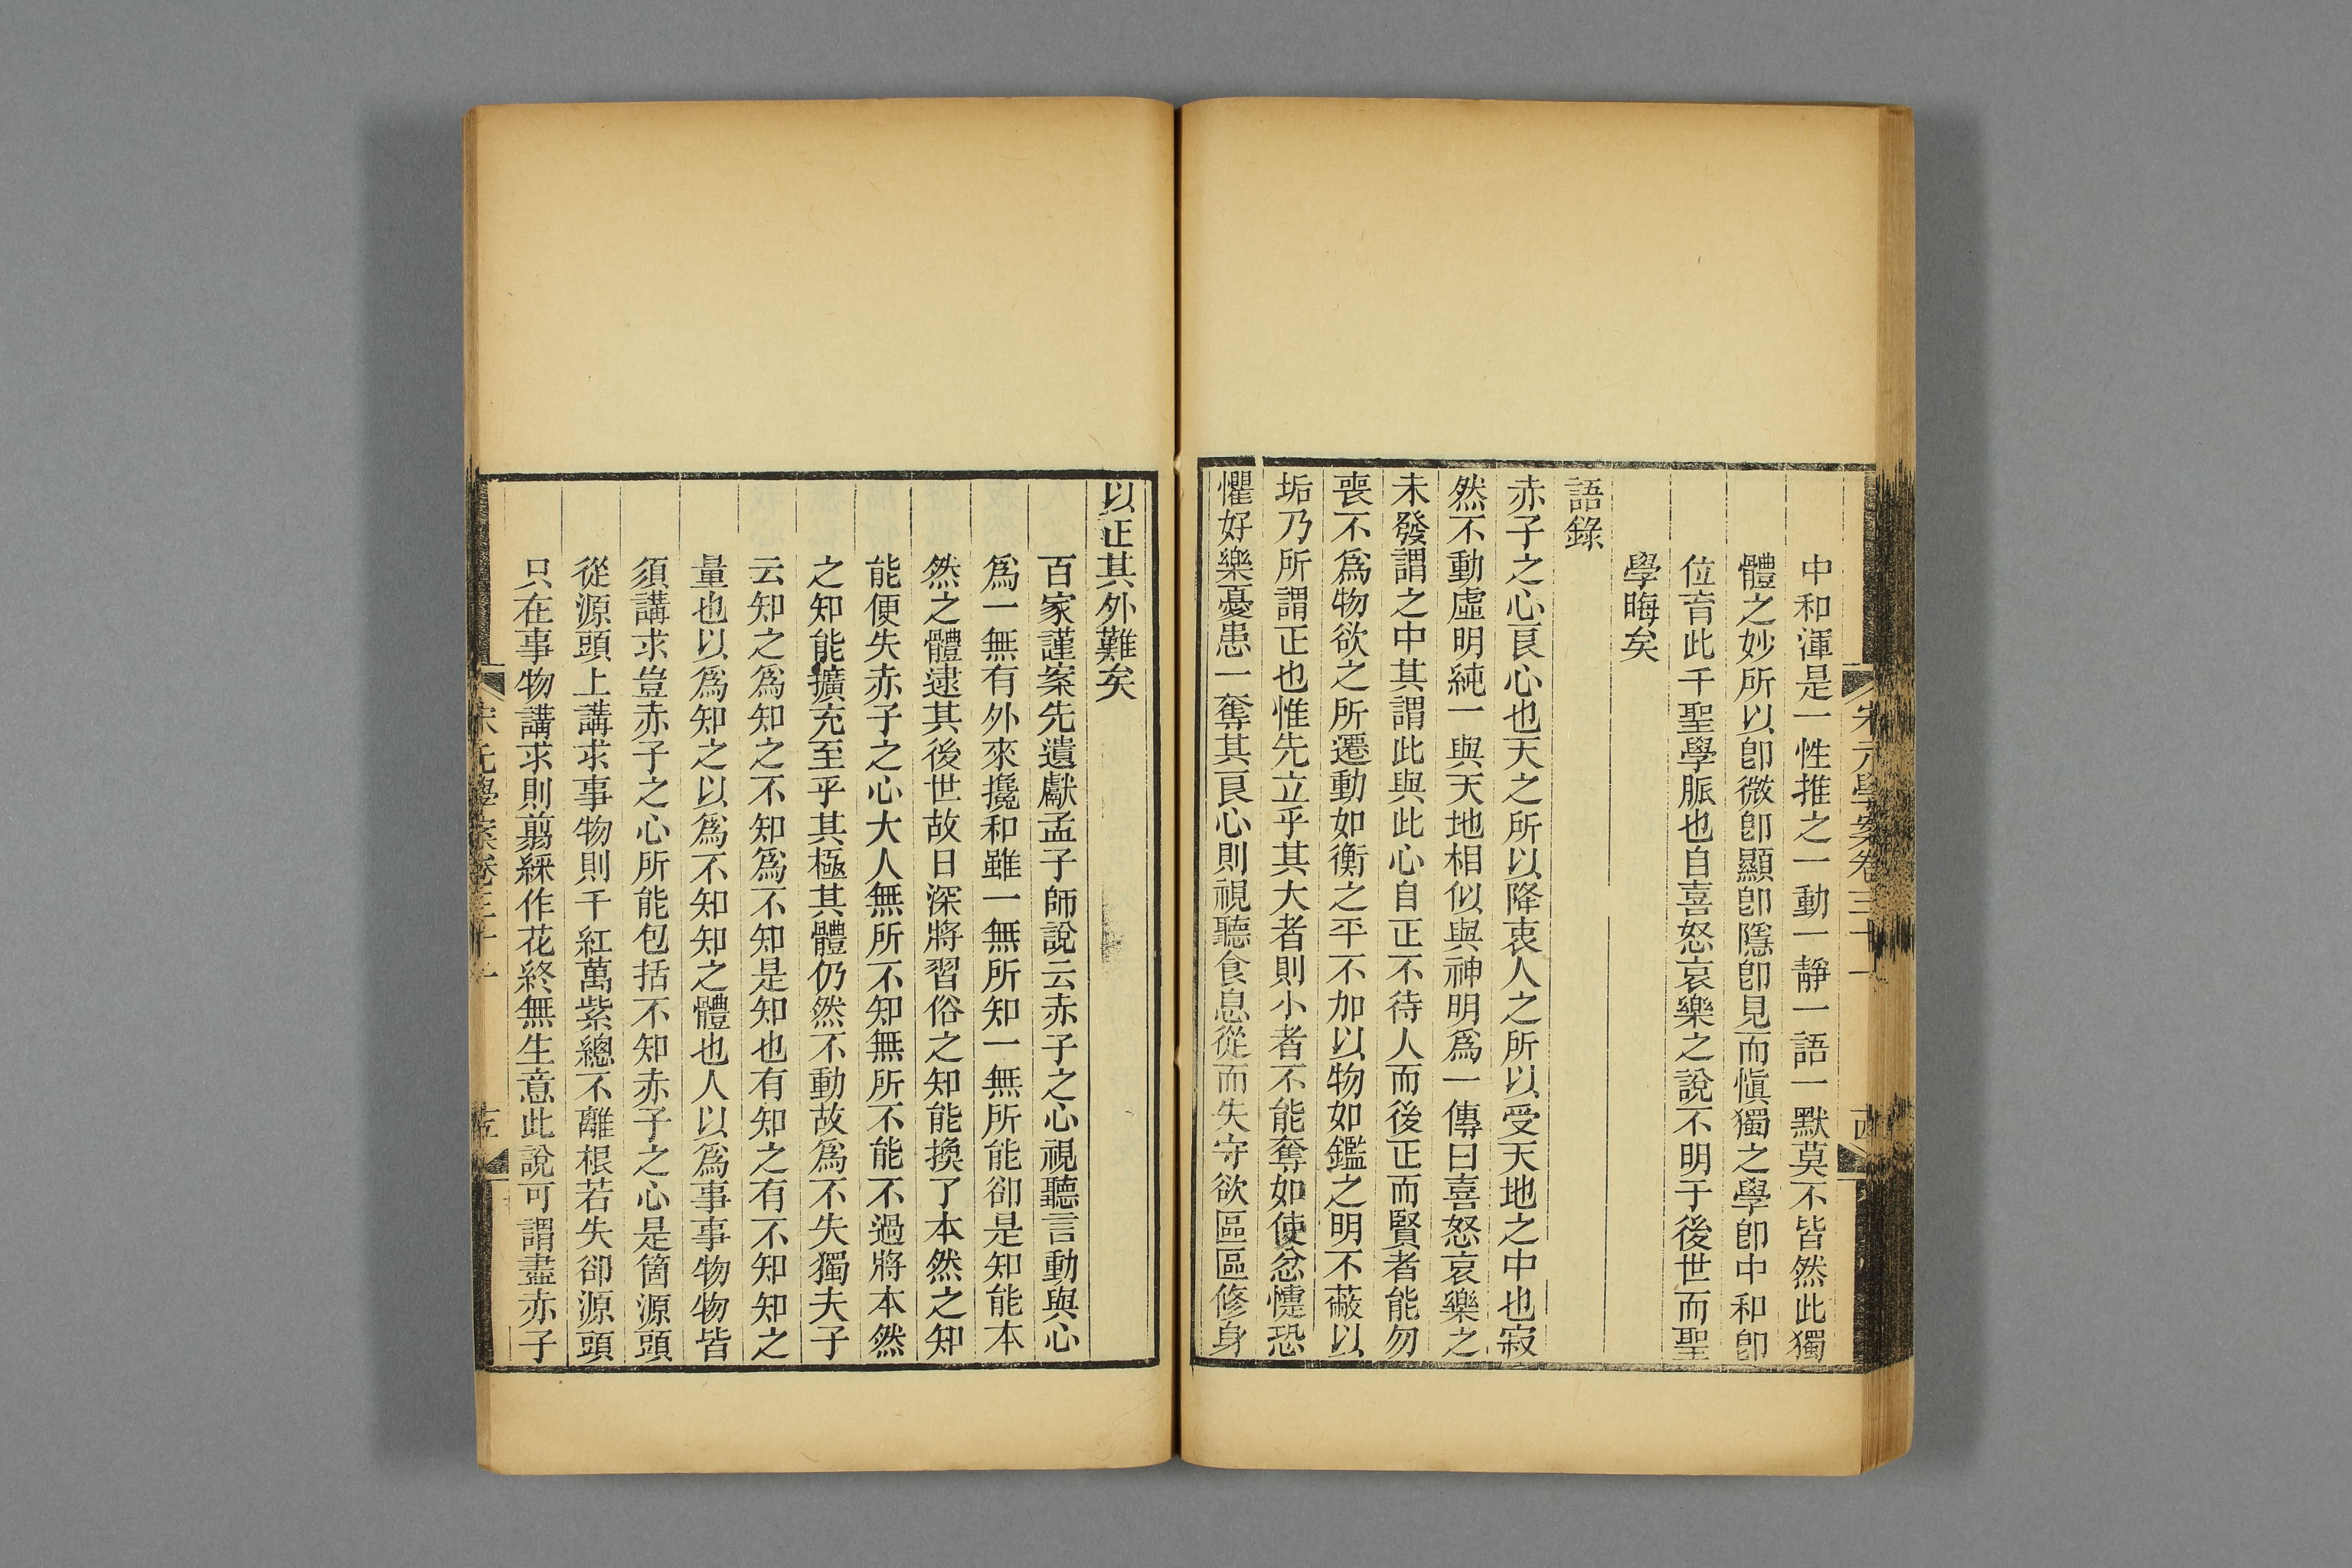 宋元學案卷三十一
十四
中和渾是一性推之一動一靜一語一默莫不皆然此獨
體之妙所以卽微卽顯卽隱卽見而愼獨之學卽中和卽
位育此千聖學脈也自喜怒哀樂之說不明于後世而聖
學晦矣
語錄
赤子之心良心也天之所以降衷人之所以受天地之中也寂
然不動虛明純一與天地相似與神明爲一傳曰喜怒哀樂之
未發謂之中其謂此與此心自正不待人而後正而賢者能勿
喪不爲物欲之所遷動如衡之平不加以物如鑑之明不蔽以
垢乃所謂正也惟先立乎其大者則小者不能奪如使忿懥恐
懼好樂憂患一奪其良心則視聽食息從而失守欲區區修身
以正其外難矣
百家謹案先遺獻孟子師說云赤子之心視聽言動與心
爲一無有外來攙和雖一無所知一無所能卻是知能本
然之體逮其後世故日深將習俗之知能換了本然之知
能便失赤子之心大人無所不知無所不能不過將本然
之知能擴充至乎其極其體仍然不動故爲不失獨夫子
云知之爲知之不知爲不知是知也有知之有不知知之
量也以爲知之以爲不知知之體也人以爲事事物物皆
須講求豈赤子之心所能包括不知赤子之心是箇源頭
從源頭上講求事物則千紅萬紫總不離根若失卻源頭
只在事物講求則翦綵作花終無生意此說可謂盡赤子
宋元學案卷三十一
十五